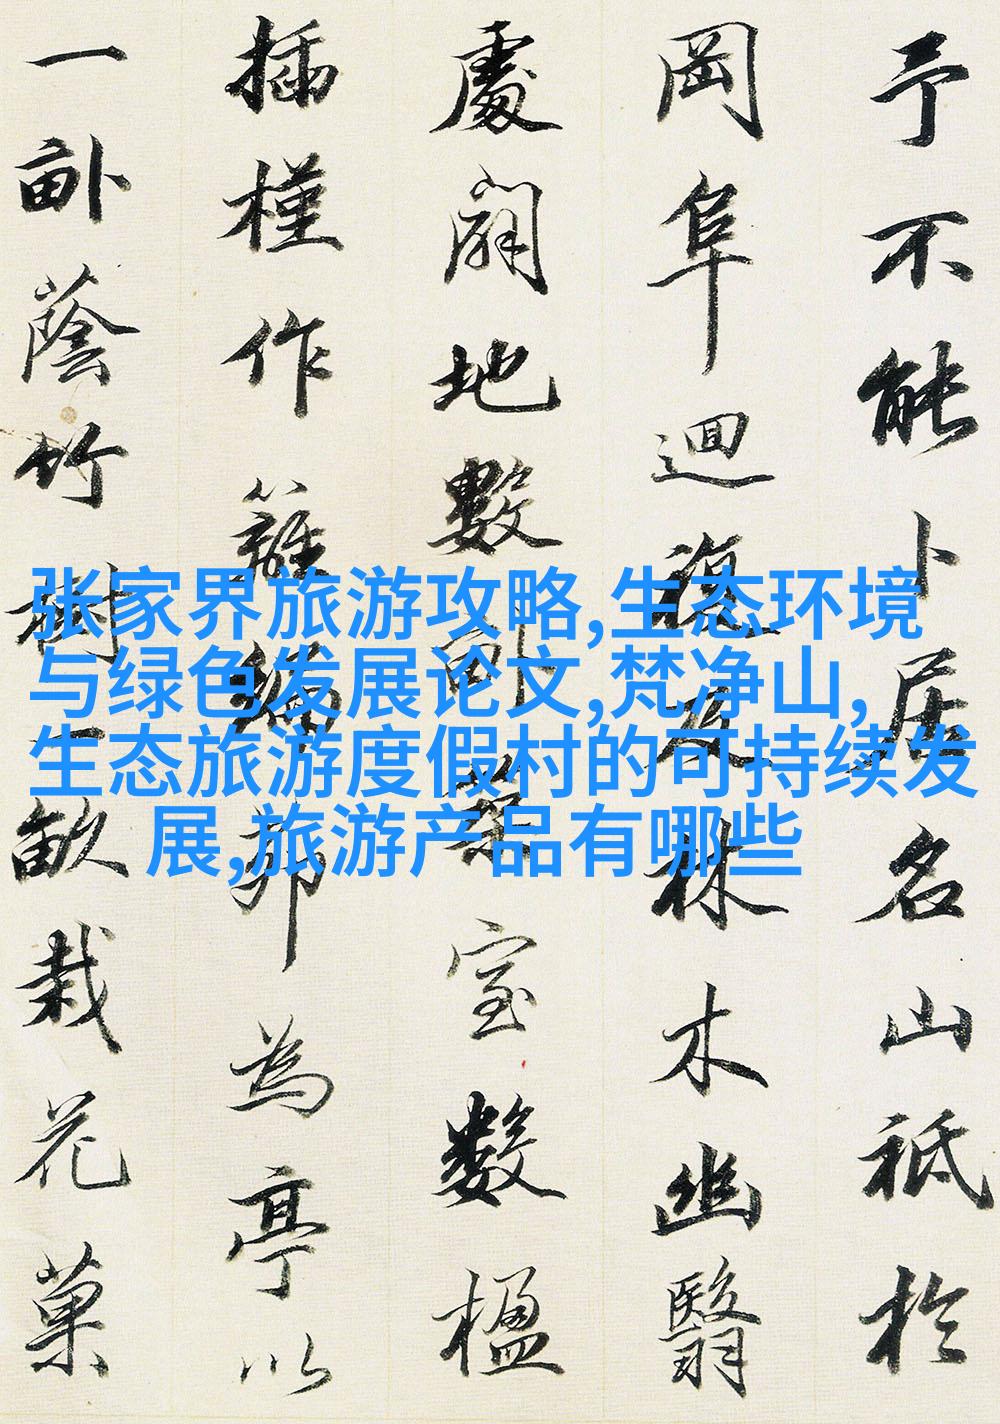 予不能卜居名山祗於
岡阜迴複及林木幽翳
處闢地數畝築室數楹
插槿作籬編茆為亭以
一畝蔭竹樹一畝栽花菓
张家界旅游攻略,生态环境
与绿色发展论文,梵净山,
生态旅游度假村的可持续发
展,旅游产品有哪些